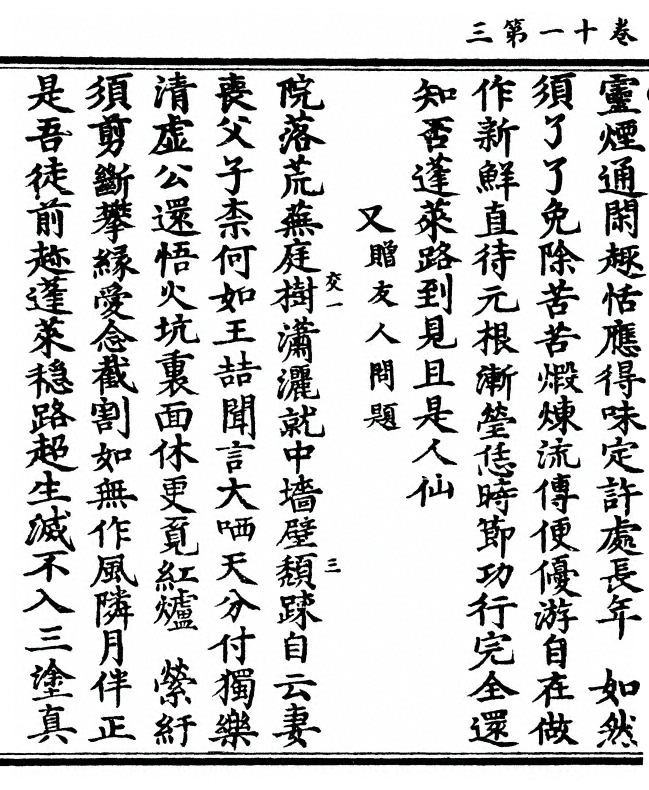 卷十一第三
靈煙通閑趣恬應得味定許處長年　如然
須了了免除苦苦煅煉流傳便優游自在做
作新鮮直待元根漸瑩恁時節功行完全還
知否蓬萊路到見且是人仙
又贈友人問題
院落荒蕪庭樹瀟灑就中墻壁頽踈自云妻
交一
三
喪父子柰何如王喆聞言大哂天分付獨樂
清虛公還悟火坑裏面休更覓紅爐　縈紆
須剪斷攀緣愛念截割如無作風隣月伴正
是吾徒前趂蓬萊穩路超生滅不入三塗真